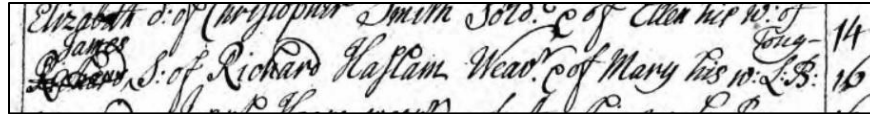 Elizabeth d: of Christopher Smith Sold.r & of Ellen his w: of Tong- 14
James
Richard S: of Richard Haslam Weav.r & of Mary his w: L:B: 16